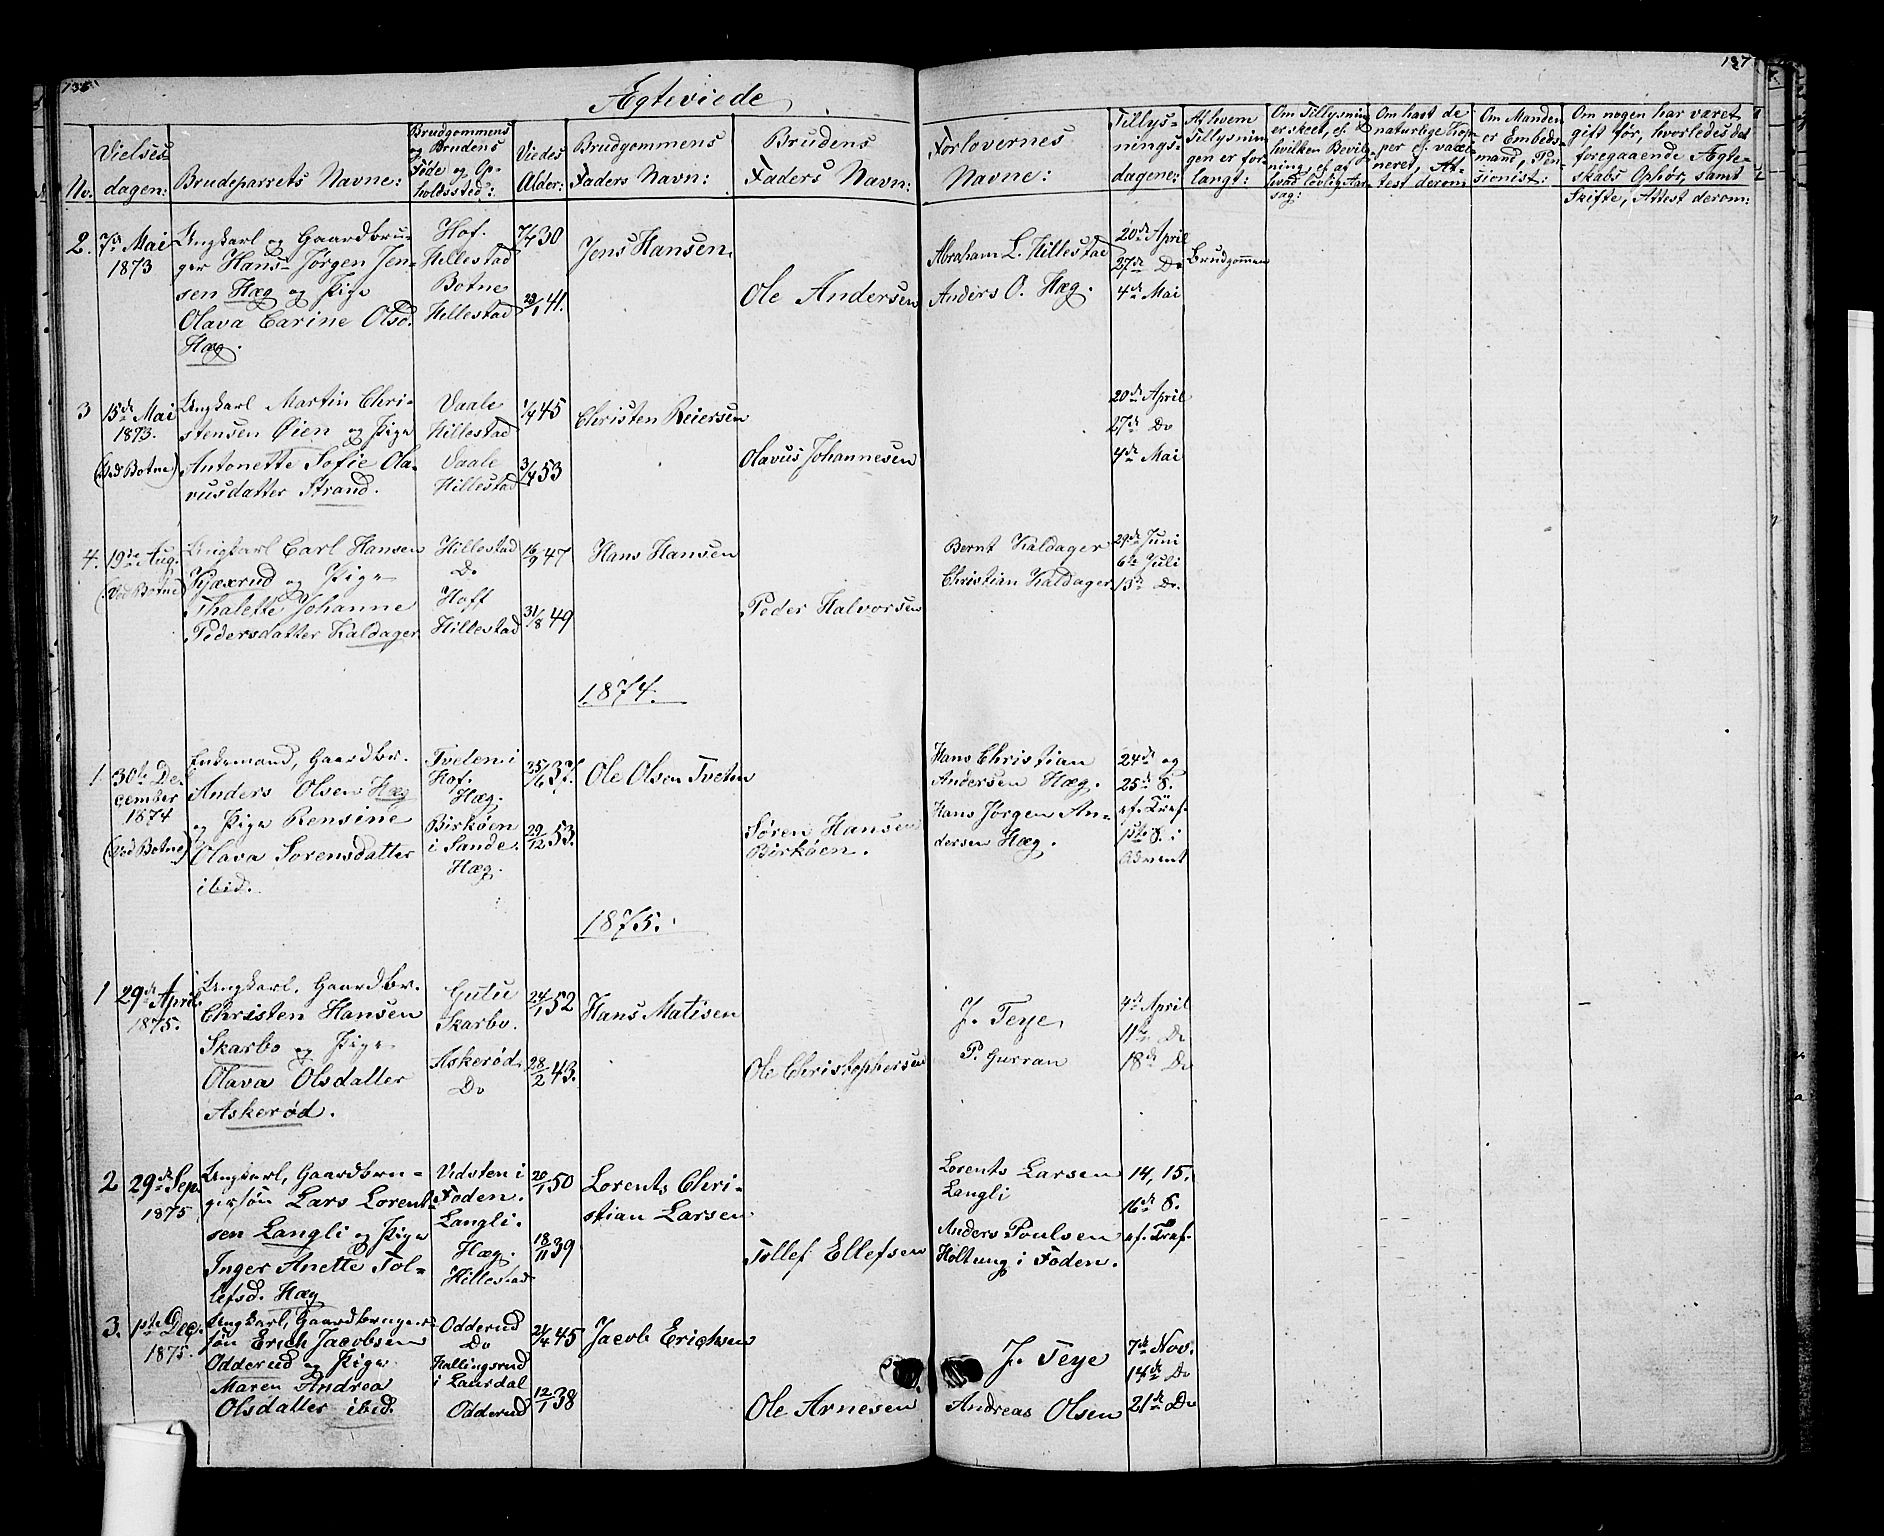 Ægteviede
137
No.
Vielses
dagen:
Brudeparrets Navne:
Brudgommens
og Brudens
Føde og Op-
holdssted:
Viedes
Alder:
Brudgommens
Faders Navn:
Brudens
Faders Navn:
Forlovernes
Navne:
Tillys-
nings-
dagene:
Af hvem
Tillysnin
gen er for
langt:
Om Tillysning
er skeet, ef.
hvilken Bevilg
ning, ef. af
hvad lovlig Aar
sag:
Om havt de
naturlige Kop
per ef. vacci
neret, At-
test derom
Om Manden
er Embeds-
mand, Pen
sionist:
Om nogen har været
gift før, hvorledes det
foregaaende Ægte-
skabs Ophør, samt
Skifte, Attest derom:
2.
7de Mai
1873
Ungkarl og Gaardbru-
ger Hans Jørgen Jen-
sen Hæg og Pige
Olava Carine Olsd.
Hæg.
Hof.
Hillestad
Botne
Hillestad
30
41.
Jens Hansen
Ole Andersen
Abraham L. Hillestad
Anders O. Hæg.
20de April
27de Do
4de Mai
Brudgommen
3
15de Mai
1873.
(Ved Botne)
Ungkarl Martin Chri-
stensen Øien og Pige
Antonette Sofie Ola-
vusdatter Strand.
Vaale
Hillestad
Vaale
Hillestad
45
3/7 53
Christen Reiersen
Olavus Johannesen
20de April
27de Do
4de Mai
4.
19de Aug.
(Ved Botne)
Ungkarl Carl Hansen
Kjæxrud og Pige
Thalette Johanne
Pedersdatter Kaldager
Hillestad
Do
Hoff
Hillestad
16/9 47
31/8 49
Hans Hansen
Peder Halvorsen
Bernt Kaldager
Christian Kaldager
29de Juni
6te Juli
13de Do
1874.
1.
30te De
cember
1874
(Ved Botne)
Enkemand, Gaardbr.
Anders Olsen Hæg
og Pige Rensine
Olava Sorensdatter
ibid.
Tveten i
Hof.
Hæg.
Birkøen
i Sande.
Hæg.
25/6 37.
29/12 53.
Ole Olsen Tveten
Søren Hansen
Birkøen.
Hans Christian
Andersen Hæg.
Hans Jørgen An-
dersen Hæg.
24de og
25de S.
ef. Tref.
1ste S. i
Advent
1875.
1
29de April
1875.
Ungkarl, Gaardbr.
Christen Hansen
Skarbo og Pige
Olava Olsdatter
Askerød.
Gutu
Skarbo.
Askerød
Do
24/1 52
28/2 43.
Hans Matisen
Ole Christophersen
J. Teye,
P. Gurran
4de April
11te Do
18de Do
2
29de Sep.
1875
Ungkarl, Gaardbru-
gersøn Lars Lorent-
sen Langli og Pige
Inger Anette Tol-
lefsd. Hæg
Vidsten i
Foden.
Langli.
Hæg.
Hillestad
20/1 50
18/11 39
Lorents Chri-
stian Larsen
Tollef Ellefsen
Lorents Larsen
Langli
Anders Poulsen
Holtung i Foden.
14, 15.
16de S.
ef. Tref.
3.
1ste Dec.
1875.
Ungkarl, Gaardbruger
søn Erich Jacobsen
Odderud og Pige
Maren Andrea
Olsdatter ibid.
Odderud
Do
Hallingsrud
i Laurdal
Odderud
21/4 45
12/1 38
Jacob Erichsen
Ole Arnesen
J. Teye
Andreas Olsen
7de Nov.
14de Do
21de Do